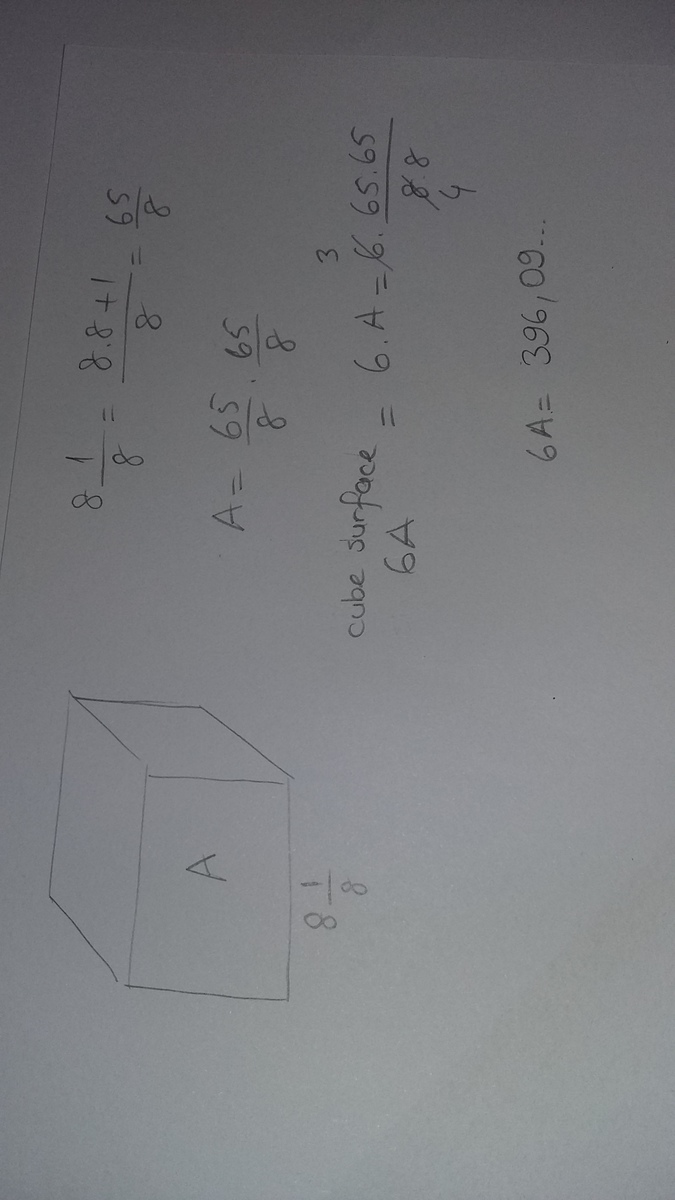 8 1/8 = 8.8+1/8 = 65/8
A = 65/8 . 65/8
cube surface = 6.A = 6. 65.65/8.8
6A
3
4
6A = 396,09...
A
8 1/8